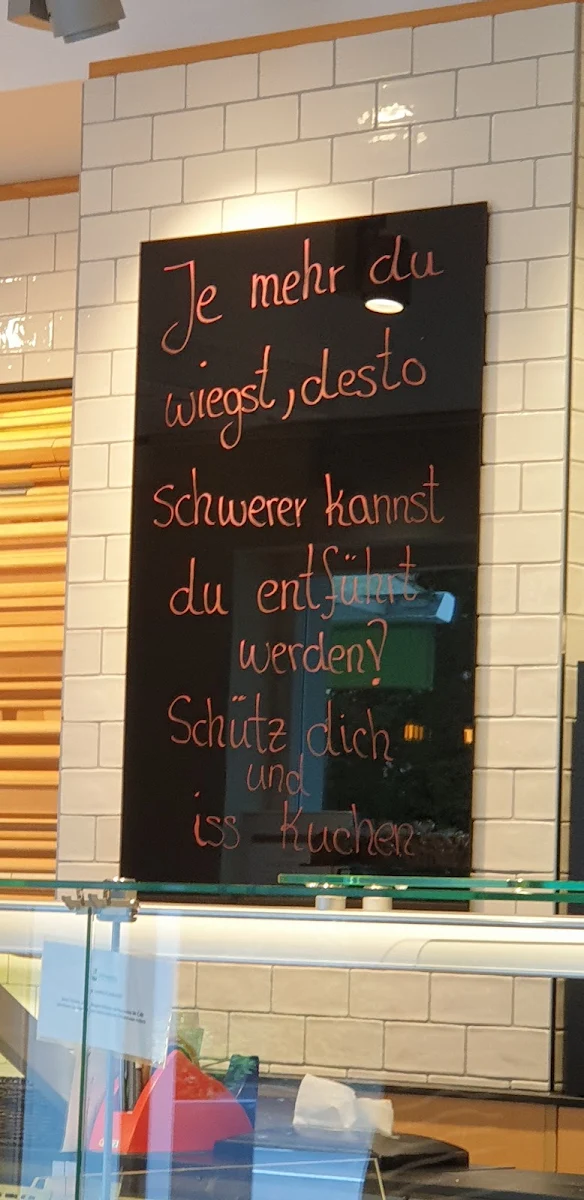 Je mehr du
wiegst, desto
schwerer kannst
du entführt
werden?
Schütz dich
und
iss Kuchen